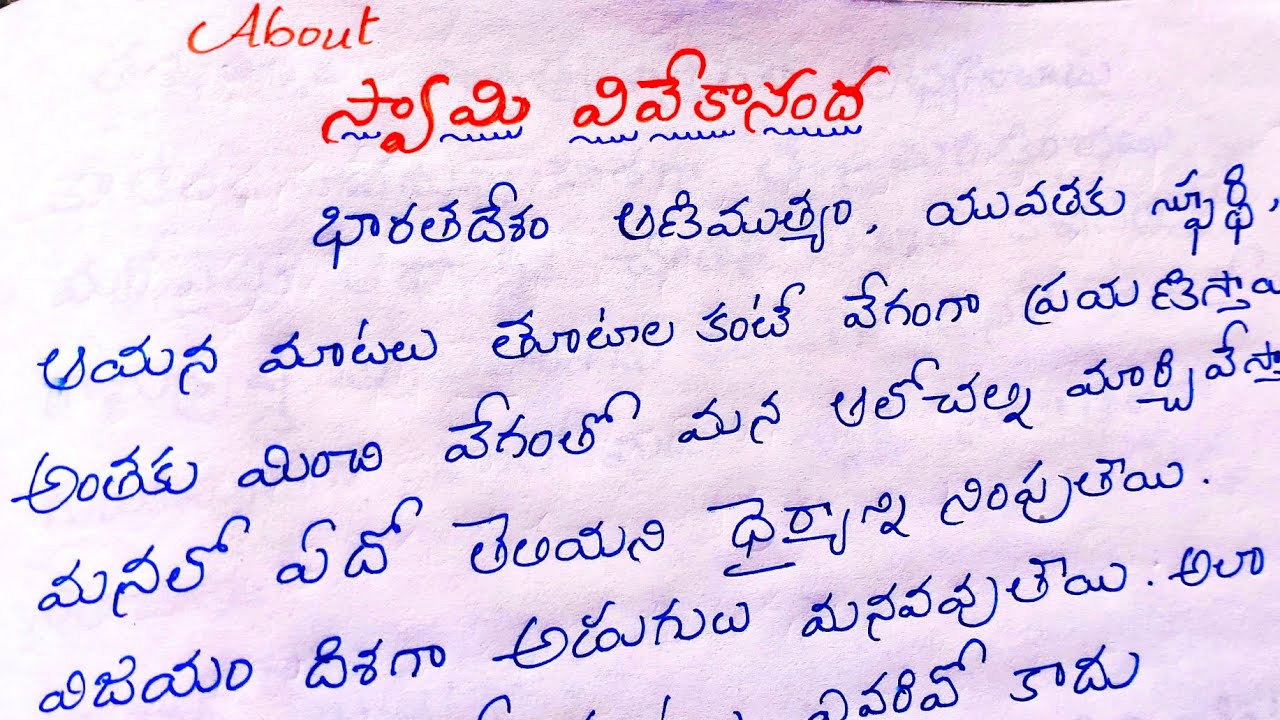 About
స్వామి వివేకానంద
భారతదేశం ఆణిముత్యం, యువతకు స్ఫూర్థి,
ఆయన మాటలు తూటాల కంటే వేగంగా ప్రయాణిస్తాయి
అంతకు మించి వేగంతో మన ఆలోచల్ని మార్చివేస్తా
మనలో ఏదో తెలియని ధైర్యాన్ని నింపుతాయి.
విజయం దిశగా అడుగులు మనవవుతాయి. అలా
ఎవరివో కాదు